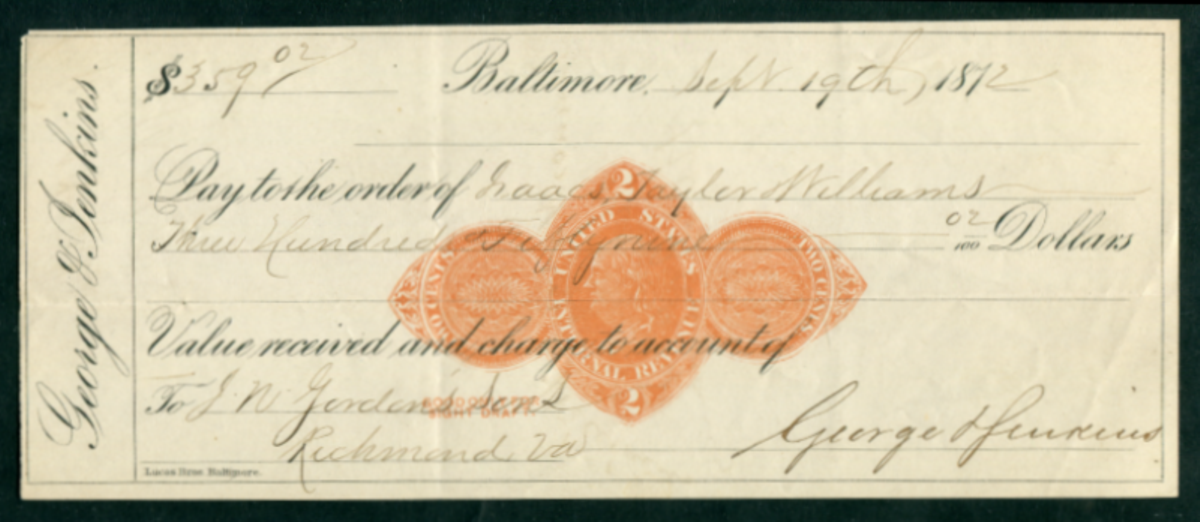 George H Jenkins.
$359 02
Baltimore, Sept. 19th, 1872
Pay to the order of Isaacs, Taylor & Williams
Three Hundred & Fifty nine 02/100 Dollars
2
UNITED STATES
INTERNAL REVENUE
TWO CENTS
TWO CENTS
2
Value received and charge to account of
To J. W. Gordon & 
GOOD ONLY FOR
SIGHT DRAFT
Richmond, Va
George H Jenkins
Lucas Bros. Baltimore.